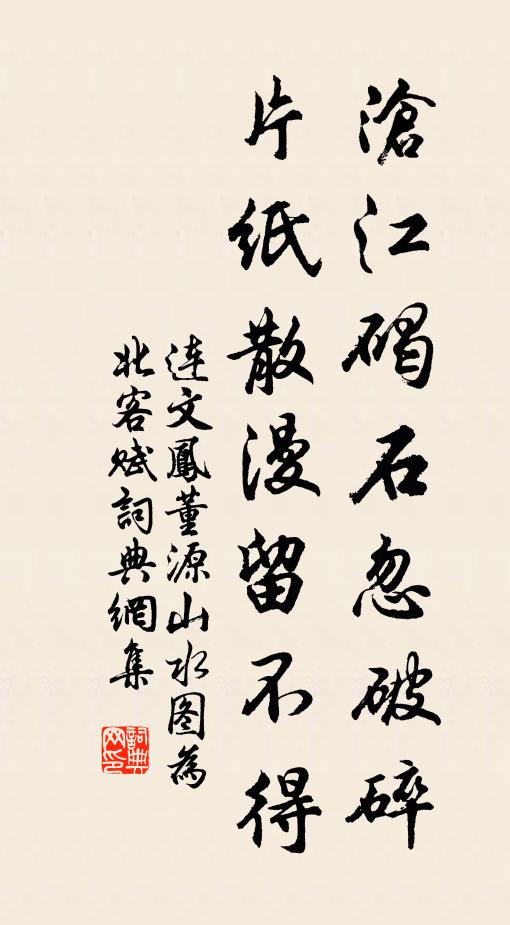 滄江碣石忽破碎
片紙散漫留不得
连文鳳董源山水图為
北客赋詞典網集
詞典
网印